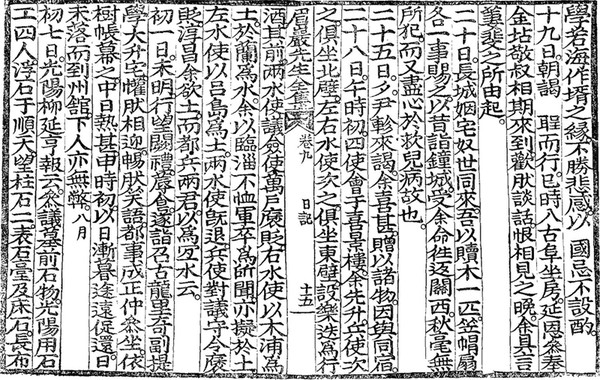 學若海作壻之緣不勝悲感以 國忌不設酌
十九日。朝謁 聖而行。巳時入古阜坐房。延恩叅奉
金坫敬叔相期來到。歡然談話。恨相見之晚。余具言
萋斐之所由起。
二十日。長城姻宅奴世同來。吾以贖木一匹。笠帽扇
各一事賜之。以昔詣鍾城。受余命往返關西秋毫無
所犯。而又盡心於救兒病故也。
二十五日。夕尹軫來謁。余喜甚。贈以諸物。因與同宿
二十八日。午時初。四使會于喜景樓。余先升。兵使次
之。俱坐北壁。左右水使次之。俱坐東壁。設樂迭爲行
眉巖先生全集 卷九 日記 十五
酒其前。兩水使議僉使萬戶褒貶。右水使以木浦爲
土。於蘭爲水。余以臨淄不恤軍卒爲所聞。亦擬於土
左水使以呂島爲土。兩水使旣退。兵使對議守令褒
貶。淳昌余欲土。而都兵兩君以爲宜水云。
初一日。未明行望闕禮。蓐食遂詣召古龍里奇副提
學大升宅。懽然相迎。暢然笑語。都事成正仲叅坐。依
樹帳幕之中。日熱甚。申時初。以日漸暮途遠促還。日
未落而到州舘。下人亦無弊。八月
初七日。光陽柳延亨報云。叅議墓前石物。光陽用石
工四人浮石于順天。望柱石二。表石臺及床石。長布